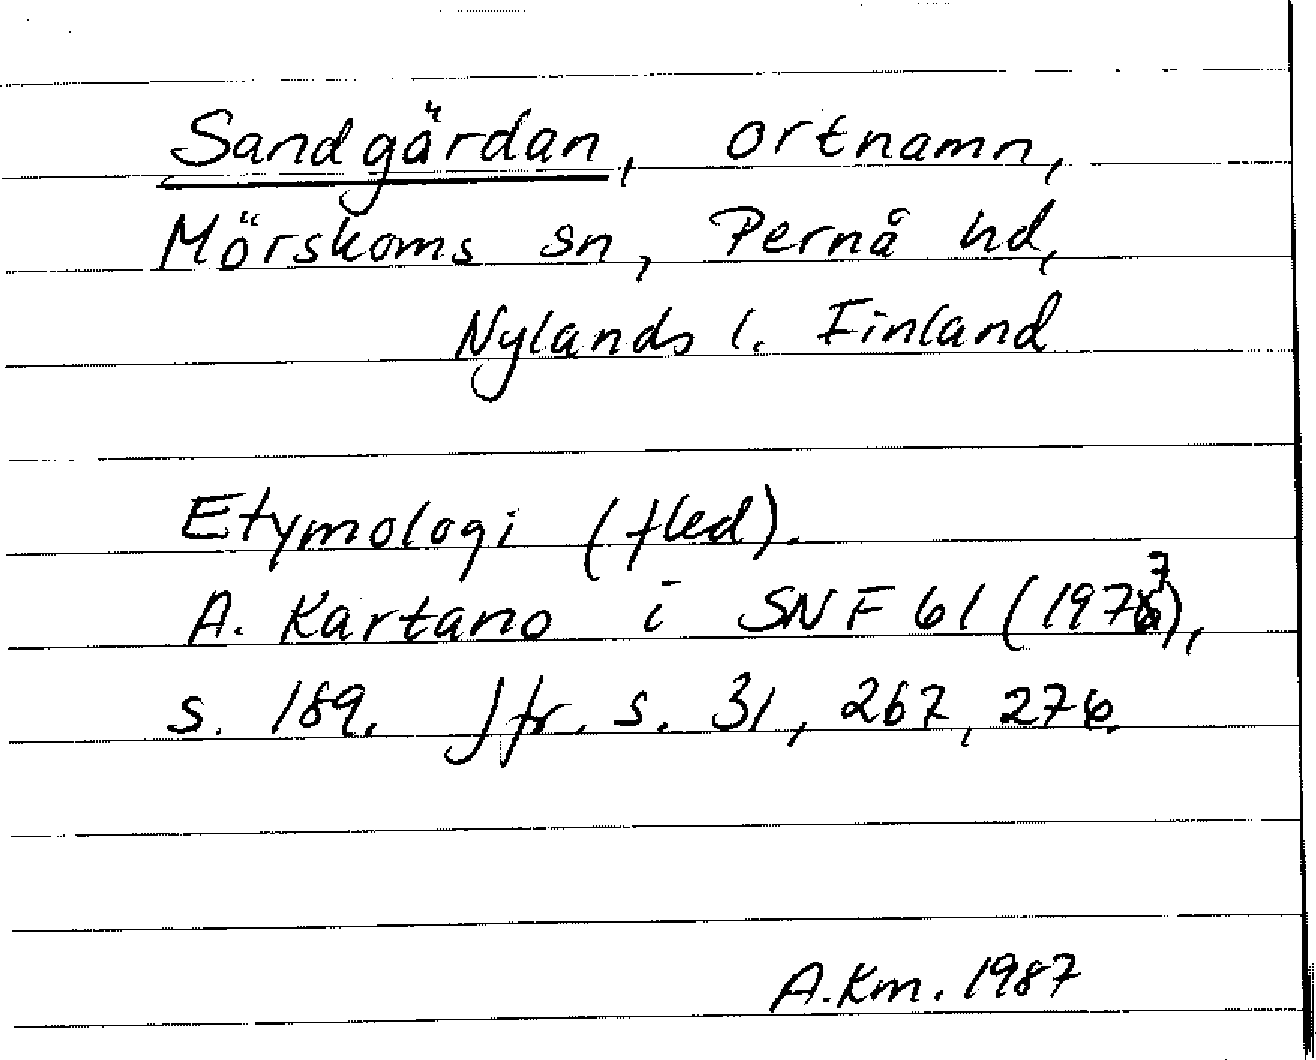 Sandgärdan, ortnamn,
Mörskoms sn, Pernå hd,
Nylands l. Finland
Etymologi (fled).
A. Kartano i SNF 61 (1977),
s. 189. Jfr. s. 31, 267, 276.
A.Km. 1987